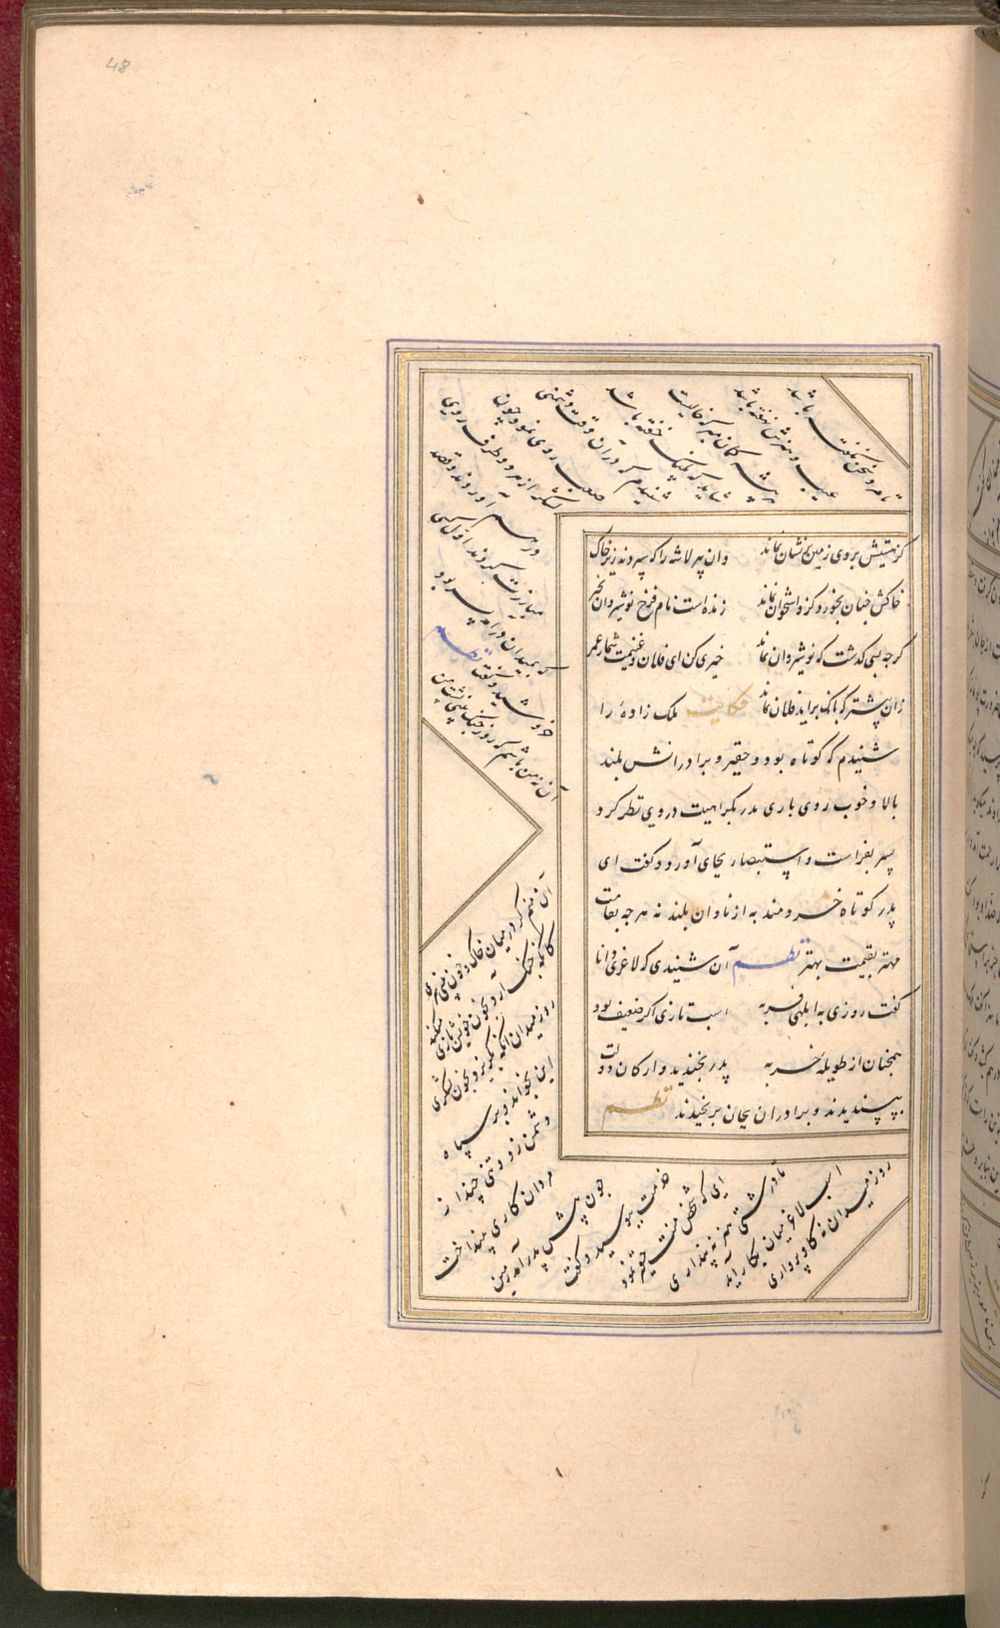 48
کز هستیش بروی زمین نشان نماند
وان پیر لاشه را که سپردند زیر خاک
خاکش چنان بخورد کزو استخوان نماند
زنده است نام فرخ نوشیروان بخیر
کرچه بسی کذشت که نوشیروان نماند
خیری کن ای فلان و غنیمت شمار عمر
زان پیشتر که بانک براید فلان نماند حکایت ملک زادهٔ را
شنیدم که کوتاه بود و حقیر و برادرانش بلند
بالا و خوب روی باری پدر بکراهیت در وی نظر کرد
پسر بفراست و استبصار بجای آورد و کفت ای
پدر کوتاه خردمند به از نادان بلند نه هر چه بقامت
مهتر بقیمت بهتر نظم آن شنیدی که لاغری دانا
کفت روزی به ابلهی فربه
اسب تازی اکر ضعیف بود
همچنان از طویلهٔ خر به
پدر بخندید و ارکان دولت
بپسندیدند و برادران بجان برنجیدند نظم
تا مرد سخن نکفته باشد
عیب و هنرش نهفته باشد
هر پیشه کمان مبر که خالیست
شاید که پلنک خفته باشد
شنیدم که در آن وقت دشمنی
صعب روی نمود چون
لشکر از هر دو طرف روی
درهم آوردند و قصد
مبارزت کردند اول کسی
که بمیدان درآمد پسر بود
خروشید و کفت نظم
آن نه من باشم که روز جنک بینی پشت من
آن منم کر در میان خاک و خون بینی سری
کانکه جنک آرد بخون خویش بازی میکند
روز میدان وانکه بکریزد بخون لشکری
این بخواند و بر سپاه
دشمن زد و تنی چند از
مردان کاری بینداخت
چون پیش پدر آمد زمین
خدمت ببوسید و کفت
ای که شخص منت حقیر نمود
تا درشتی هنر نپنداری
اسب لاغر میان بکار آید
روز میدان نه کاو پرواری